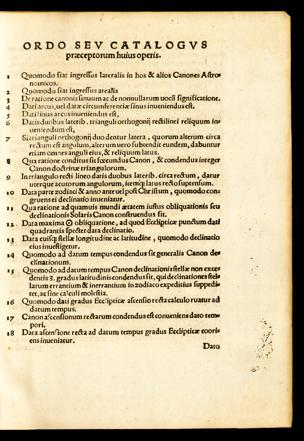 ORDO SEV CATALOGVS
præceptorum huius operis.
1 Quomodo fiat ingressus lateralis in hos & alios Canones Astro
nomicos.
2 Quomodo fiat ingressus arealis
3 De ratione canonis sinuum ac de nonnullarum vocū significatione.
4 Dati arcus, uel datæ circumferentiæ sinus inueniendus est.
5 Dati sinus arcus inueniendus est,
6 Datis duobus laterib. trianguli orthogonij rectilinei reliquum in-
ueniendum est,
7 Si trianguli orthogonij duo dentur latera, quorum alterum circa
rectum est angulum, alterum uero subtendit eundem, dabuntur
etiam omnes anguli eius, & reliquum latus.
8 Qua ratione conditus sit fœcundus Canon, & condendus integer
Canon doctrinæ triangulorum.
9 In triangulo recti lineo datis duobus laterib. circa rectum, datur
uterque acutorum angulorum, itemq; latus recto suptensum.
10 Data parte zodiaci & anno ante uel post Christum, quomodo con-
gruens ei declinatio inueniatur.
11 Qua ratione ad quamuis mundi ætatem iustus obliquationis seu
declinationis Solaris Canon construendus sit.
12 Data maxima ☉ obliquatione, ad quod Eclipticæ punctum dati
quadrantis spectet data declinatio.
13 Data cuiusq; stellæ longitudine ac latitudine, quomodo declinatio
eius inuestigetur.
14 Quomodo ad datum tempus condendus sit generalis Canon de-
clinationum.
15 Quomodo ad datum tempus Canon declinationis stellæ non exce-
dentis 3. gradus latitudinis condendus sit, qui declinationes stella-
larum errantium & inerrantium in zodiaco expeditius suppedi-
tet, ac sine calculi molestia.
16 Quomodo dati gradus Eclipticæ ascensio recta calculo ruatur ad
datum tempus.
17 Canon ascensionum rectarum condendus est conueniens dato tem-
pori.
18 Data ascensione recta ad datum tempus gradus Eclipticæ coori-
ens inueniatur.
Dato